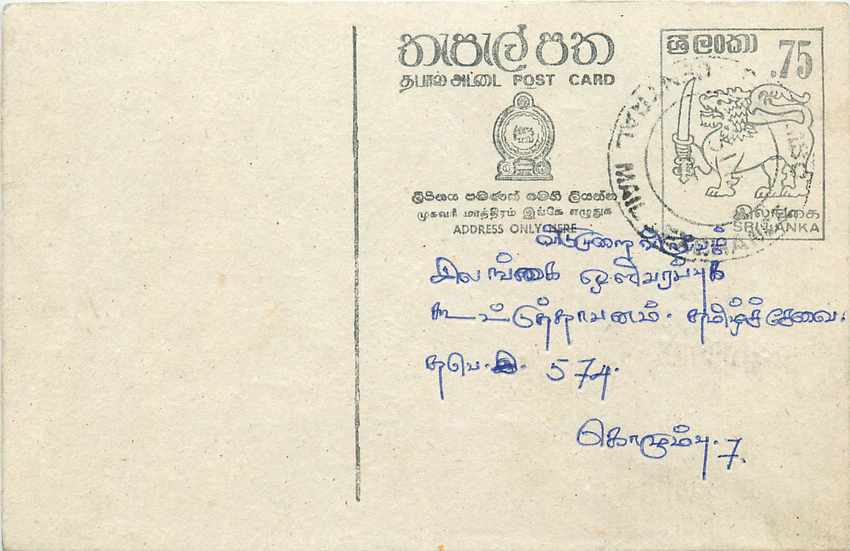 තැපැල් පත
ශ්‍රී ලංකා
.75
தபால் அட்டை POST CARD
CENTRAL MAIL EXCHANGE
ලිපිනය පමණක් මෙහි ලියන්න
முகவரி மாத்திரம் இங்கே எழுதுக
ADDRESS ONLY HERE
இலங்கை
SRI LANKA
இலங்கை ஒலிபரப்புக்
கூட்டுத்தாபனம். தமிழ்ச்சேவை.
தபெ.இ. 574.
கொழும்பு.7.